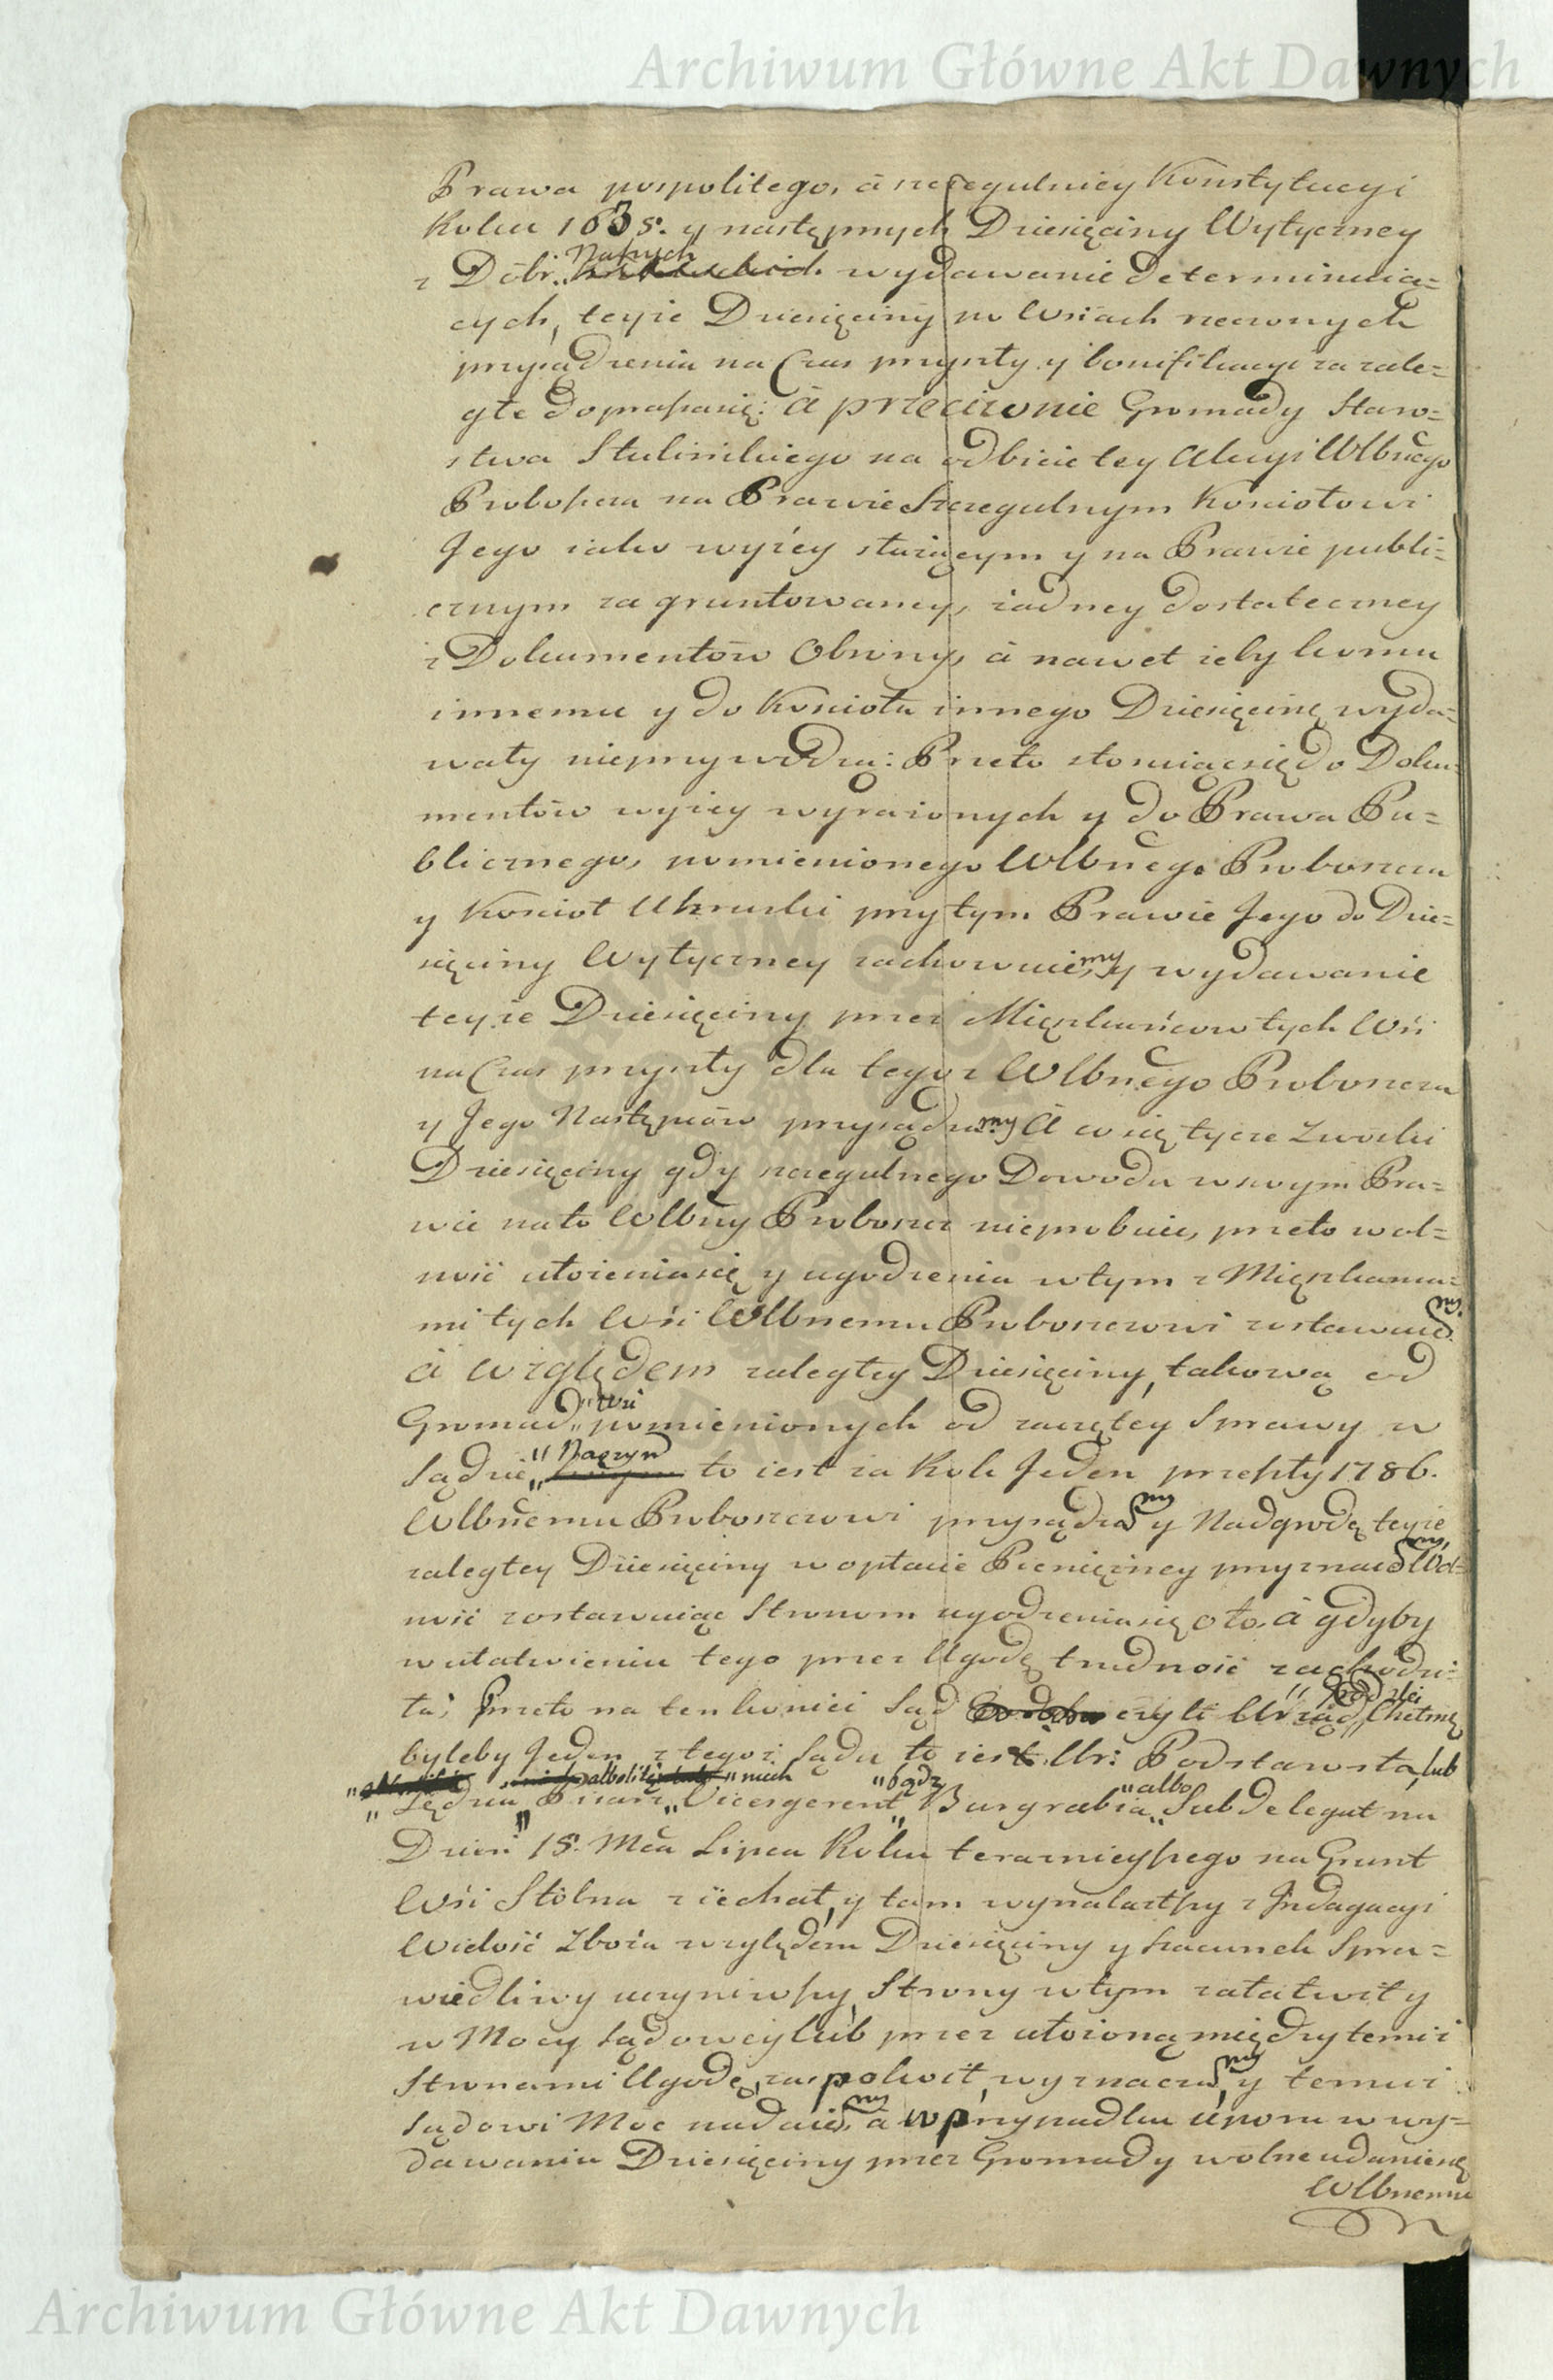 Archiwum Główne Akt Dawnych
Prawa pospolitego, à szczegulniey Konstytucyi
Roku 1635. y następnych Dziesięciny Wytyczney
z Dóbr Naszych wydawanie determinuią=
cych, teyże Dziesięciny po Wsiach rzeczonych
przysądzenia na Czas przyszły y bonifikacyi za zale=
głe dopraszasię: à przeciwnie Gromady Staro=
stwa Stulinskiego na odbicie tey Akcyi Wlbnego
Proboszcza na Prawie Szczegulnym Kosciołowi
Jego iako wyżey służącym y na Prawie publi=
cznym za gruntowaney, żadney dostateczney
z Dokumentów Obrony, à nawet żeby komu
innemu y do Koscioła innego Dziesięcinę wyda=
wały nieprzywodzą: Przeto stosuiącsię do Doku=
mentów wyżey wyrażonych y do Prawa Pu=
blicznego, pomienionego Wlbnego Proboszcza
y Kosciół Uhruski przy tym Prawie Jego do Dzie=
sięciny Wytyczney zachowuiemy y wydawanie
teyże Dziesięciny przez Mięszkańcow tych Wsi
na Czas przyszły dla tegoż Wlbnego Proboszcza
y Jego Następców przysądzamy A co się tycze Zwoski
Dziesięciny gdy szczegulnego Dowodu w swym Pra=
wie na to Wlbny Proboszcz nieprobuie, przeto wol=
ność ułożeniasię y ugodzenia w tym z Mięszkanca=
mi tych Wsi Wlbnemu Proboszczowi zostawuiemy.
à względem zaległey Dziesięciny, takową od
Gromad "Wsi" pomienionych od zaczętey Sprawy w
Sądzie "Naszym" to iest za Rok Jeden przeszły 1786.
Wlbnemu Proboszczowi przysądzamy y Nadgrodę teyże
zaległey Dziesięciny w opłacie Pieniężney przyznaiemy, Wol=
ność zostawuiąc Stronom ugodzeniasię o to, à gdyby
w ułatwieniu tego przez Ugodę trudność zachodzi=
ła; Przeto na ten koniec Sąd czyli Urząd Grodzki Chełmski
byleby Jeden z tegoż Sądu to iest Ur: Podstarosta, lub
Sędzia albo też Pisarz, Vicesgerent "bądź" Burgrabia "albo" Subdelegat na
Dzień 15. Mca Lipca Roku teraznieyszego na Grunt
Wsi Stólna zïechał, y tam wynalazłszy z Indagacyi
Wielość Zboża względem Dziesięciny y szacunek Spra=
wiedliwy uczyniwszy, Strony w tym załatwił y
w Mocy Sądowey lub przez ułożoną między temiż
Stronami Ugodę, zaspokoił, wyznaczamy, y temuż
Sądowi Moc nadaiemy, à w przypadku uporu w wy=
dawaniu Dziesięciny przez Gromady wolne udaniesię
Wlbnemu
Archiwum Główne Akt Dawnych